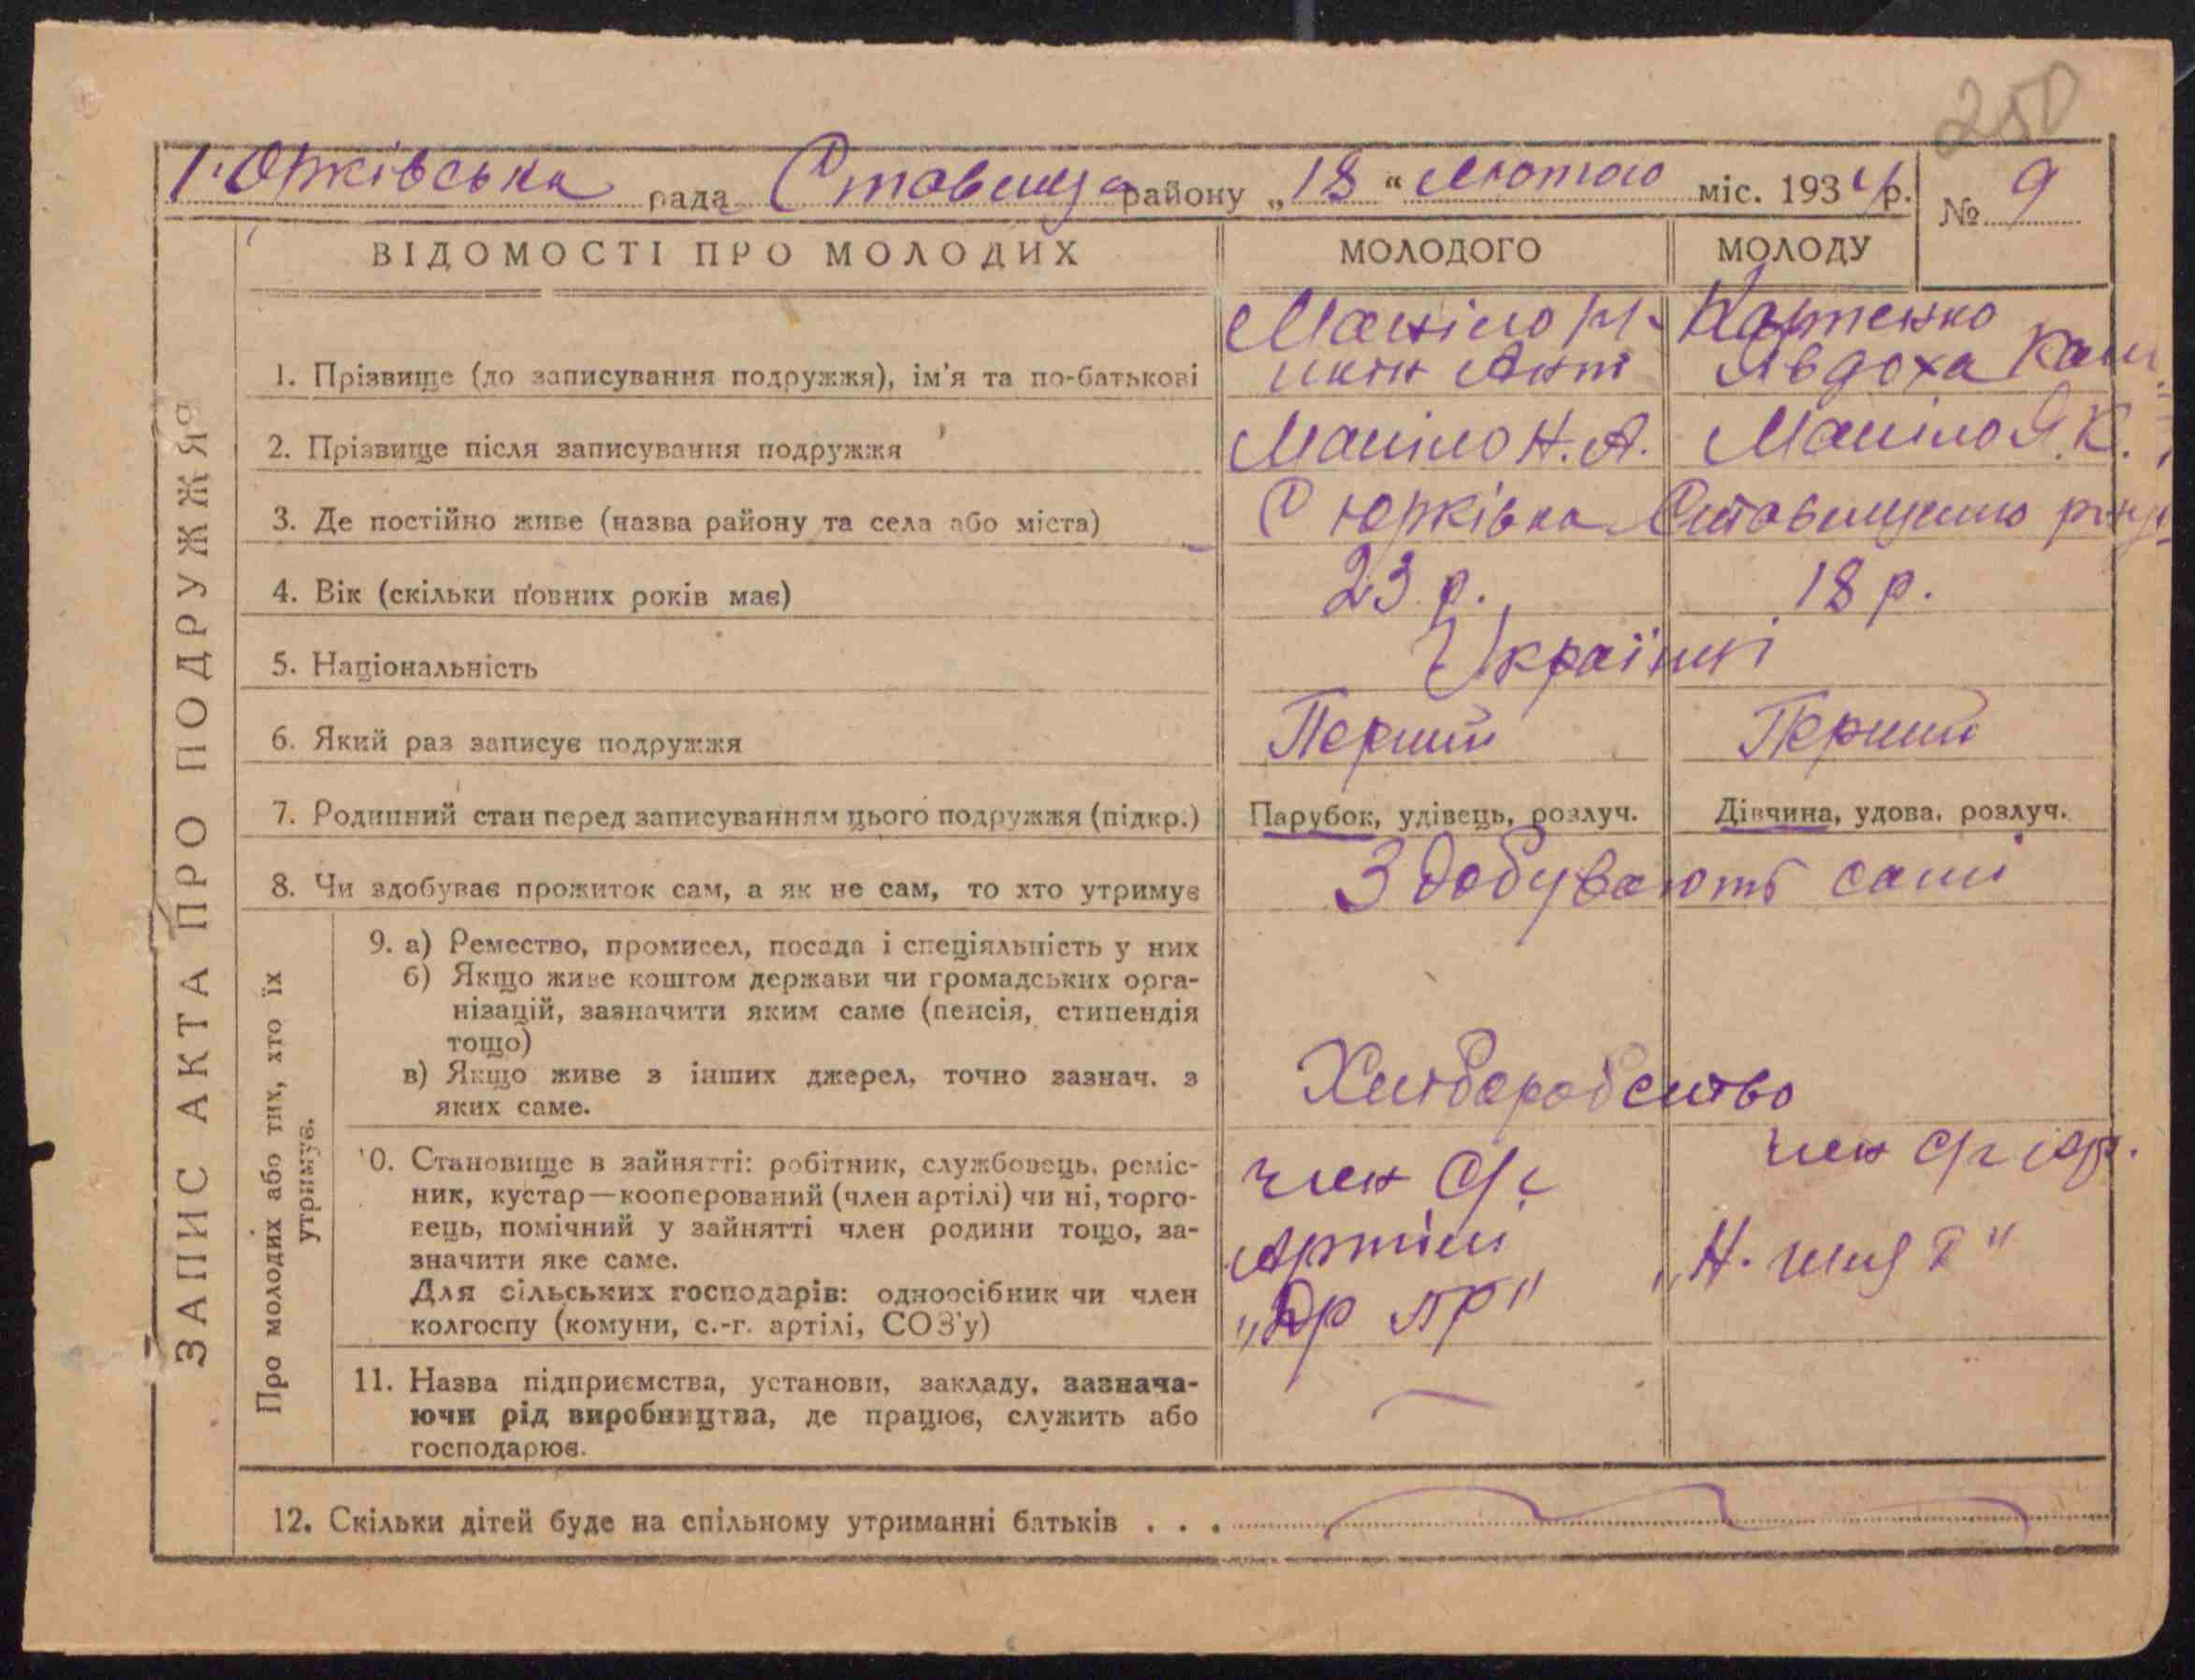 250
Юрківська рада Ставище району „18“ Лютого міс. 1934 р. № 9
ЗАПИС АКТА ПРО ПОДРУЖЖЯ
ВІДОМОСТІ ПРО МОЛОДИХ МОЛОДОГО МОЛОДУ
1. Прізвище (до записування подружжя), ім'я та по-батькові
Явдоха
2. Прізвище після записування подружжя Маніло Н. А. Маніло Я. К.
3. Де постійно живе (назва району та села або міста) С Юрківка
4. Вік (скільки повних років має) 23 р. 18 р.
5. Національність Українці
6. Який раз записує подружжя Перший Перший
7. Родинний стан перед записуванням цього подружжя (підкр.) Парубок, удівець, розлуч. Дівчина, удова, розлуч.
8. Чи здобуває прожиток сам, а як не сам, то хто утримує Здобувають самі
Про молодих або тих, хто їх
утримує.
9. а) Ремество, промисел, посада і спеціяльність у них
б) Якщо живе коштом держави чи громадських орга-
нізацій, зазначити яким саме (пенсія, стипендія
тощо)
в) Якщо живе з інших джерел, точно зазнач. з
яких саме.
Хліборобство
10. Становище в зайнятті: робітник, службовець, реміс-
ник, кустар—кооперований (член артілі) чи ні, торго-
вець, помічний у зайнятті член родини тощо, за-
значити яке саме.
Для сільських господарів: одноосібник чи член
колгоспу (комуни, с.-г. артілі, СОЗ'у)
член с/г
Артілі
член с/г
11. Назва підприємства, установи, закладу, зазнача-
ючи рід виробництва, де працює, служить або
господарює.
—
12. Скільки дітей буде на спільному утриманні батьків . . .